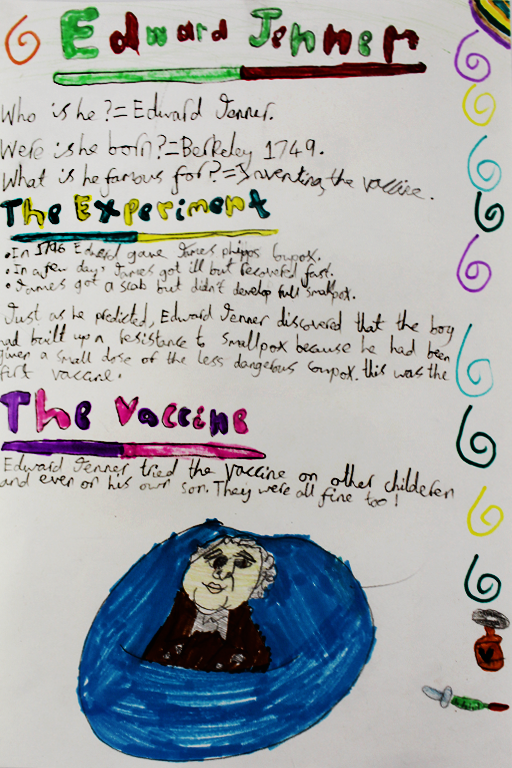 Edward Jenner
Who is he?= Edward Jenner.
Were is he born?= Berkeley 1749.
What is he famous for?= Inventing the vaccine.
The Experiment
• In 1796 Edward gave James phipps Coupox.
• In a few days James got ill but recovered fast.
• James got a scab but didn't develop full smallpox.
Just as he predicted, Edward Jenner discovered that the boy
had built up a resistance to smallpox because he had been
given a small dose of the less dangerous coupox. this was the
first vaccine.
The Vaccine
Edward Jenner tried the vaccine on other childeren
and even on his own son. They were all fine too!